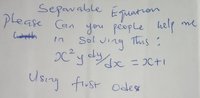 Separable Equation
Please Can you people help me
in Solving This:
x² y dy/dx = x+1
Using first Oder